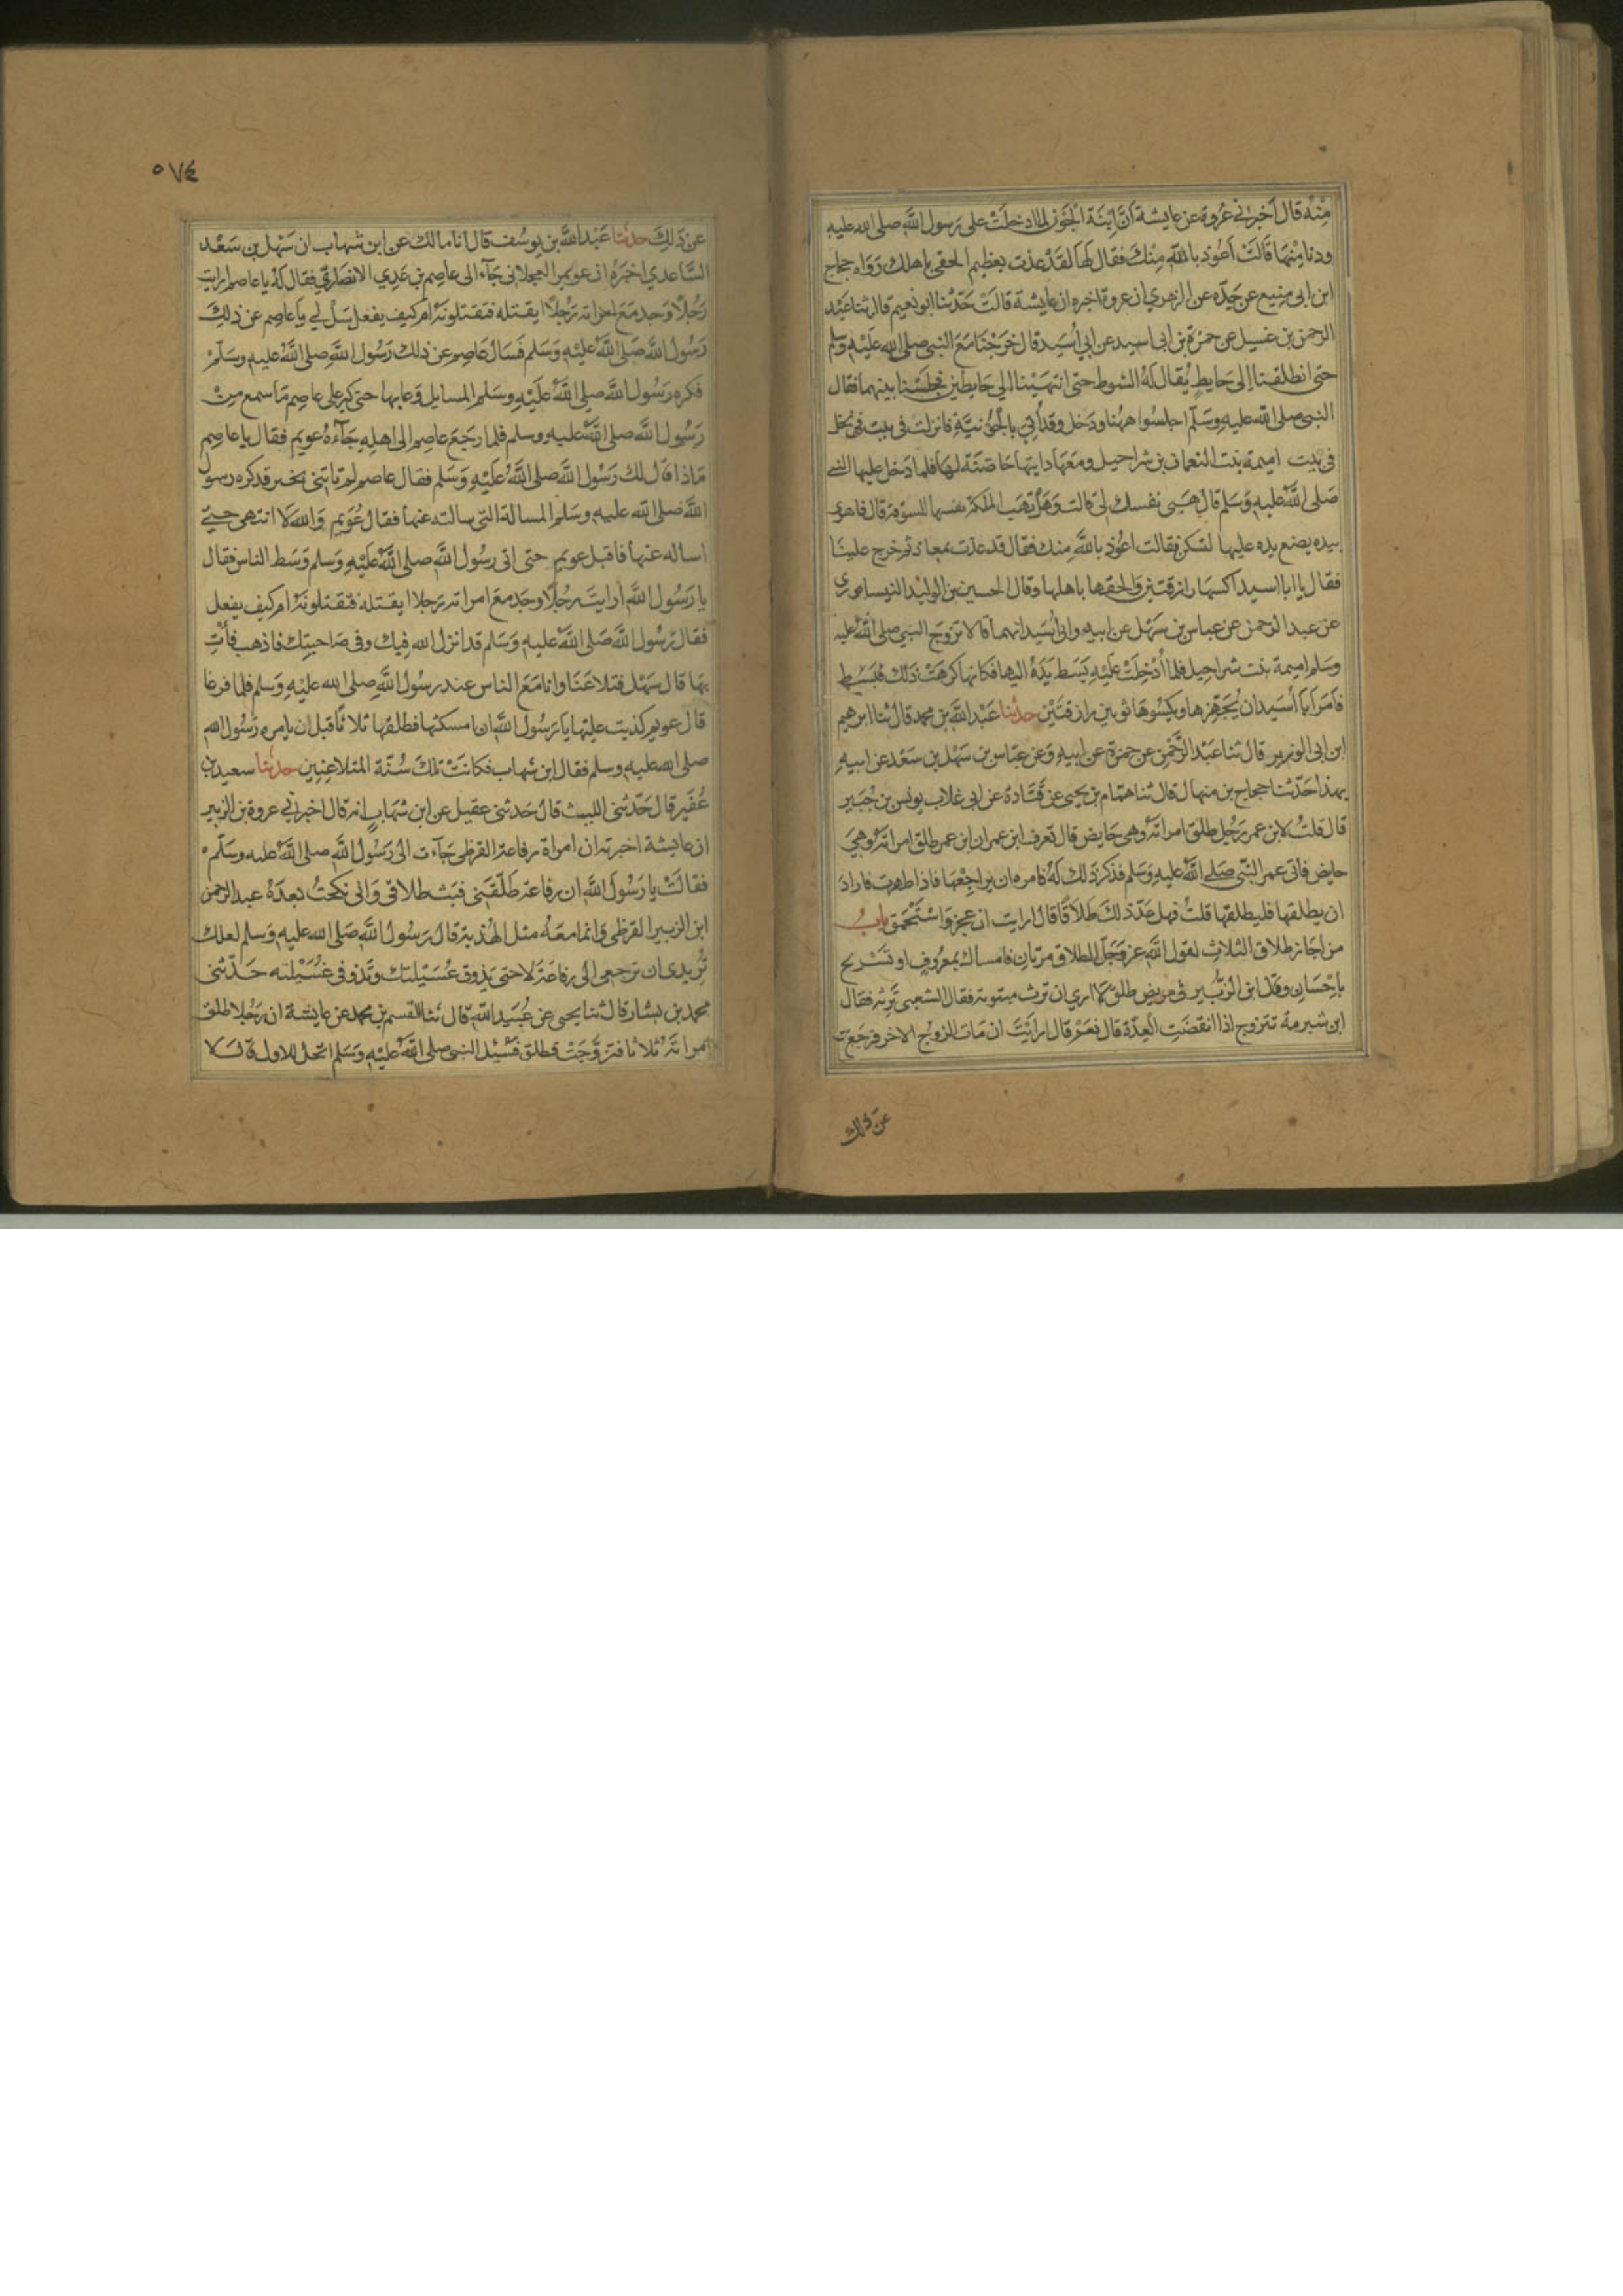 منه قال اخبرني عروة عن عايشة ان ابنة الجون لما ادخلت على رسول الله صلى الله عليه
ودنا منها قالت اعوذ بالله منك فقال لها لقد عذت بعظيم الحقي باهلك رواه حجاج
ابن ابي منيع عن جده عن الزهري ان عروة اخبره ان عايشة قالت حدثنا ابو نعيم قال ثنا عبد
الرحمن بن غسيل عن حمزة بن ابي اسيد عن ابي اسيد قال خرجنا مع النبي صلى الله عليه وسلم
حتى انطلقنا الى حايط يقال له الشوط حتى انتهينا الى حايطين فجلسنا بينهما فقال
النبي صلى الله عليه وسلم اجلسوا ههنا ودخل وقد أتي بالجونية فانزلت في بيت في نخل
في بيت اميمة بنت النعمان بن شراحيل ومعها دايتها حاضنة لها فلما دخل عليها النبي
صلى الله عليه وسلم قال هبي نفسك لي قالت وهل تهب الملكة نفسها للسوقة قال فاهوى
بيده يضع يده عليها لتسكن فقالت اعوذ بالله منك فقال قد عذت بمعاذ ثم خرج علينا
فقال يا ابا اسيد اكسها رازقتين والحقها باهلها وقال الحسين بن الوليد النيسابوري
عن عبد الرحمن عن عباس بن سهل عن ابيه وابي اسيد انهما قالا تزوج النبي صلى الله عليه
وسلم اميمة بنت شراحيل فلما أدخلت عليه بسط يده اليها فكانها كرهت ذلك فبسط
فامر ابا أسيد ان يجهزها ويكسوها ثوبين رازقتين حدثنا عبد الله بن محمد قال ثنا ابرهيم
ابن ابي الوزير قال ثنا عبد الرحمن عن حمزة عن ابيه وعن عباس بن سهل بن سعد عن ابيه
بهذا حدثنا حجاج بن منهال قال ثنا همام بن يحيى عن قتادة عن ابي غلاب يونس بن جبير
قال قلت لابن عمر رجل طلق امراته وهي حايض قال تعرف ابن عمر ان ابن عمر طلق امراته وهي
حايض فاتى عمر النبي صلى الله عليه وسلم فذكر ذلك له فامره ان يراجعها فاذا طهرت فاراد
ان يطلقها فليطلقها قلت فهل عد ذلك طلاقا قال ارايت ان عجز واستحمق باب
من اجاز طلاق الثلاث لقول الله عز وجل الطلاق مرتان فامساك بمعروف او تسريح
باحسان وقال ابن الزبير في مريض طلق لا ارى ان ترث مبتوتة فقال الشعبي ترثه فقال
ابن شبرمة تتزوج اذا انقضت العدة قال نعم قال ارايت ان مات الزوج الاخر فرجع
عن ذلك
٥٧٤
عن ذلك حدثنا عبد الله بن يوسف قال انا مالك عن ابن شهاب ان سهل بن سعد
الساعدي اخبره ان عويمر العجلاني جآء الى عاصم بن عدي الانصاري فقال له يا عاصم ارايت
رجلا وجد مع امراته رجلا ايقتله فتقتلونه ام كيف يفعل سل لي يا عاصم عن ذلك
رسول الله صلى الله عليه وسلم فسال عاصم عن ذلك رسول الله صلى الله عليه وسلم
فكره رسول الله صلى الله عليه وسلم المسايل وعابها حتى كبر على عاصم ما سمع من
رسول الله صلى الله عليه وسلم فلما رجع عاصم الى اهله جآءه عويمر فقال يا عاصم
ماذا قال لك رسول الله صلى الله عليه وسلم فقال عاصم لم تاتني بخير قد كره رسول
الله صلى الله عليه وسلم المسالة التي سالته عنها فقال عويمر والله لا انتهي حتى
اساله عنها فاقبل عويمر حتى اتى رسول الله صلى الله عليه وسلم وسط الناس فقال
يا رسول الله أرايت رجلا وجد مع امراته رجلا ايقتله فتقتلونه ام كيف يفعل
فقال رسول الله صلى الله عليه وسلم قد انزل الله فيك وفي صاحبتك فاذهب فأت
بها قال سهل فتلاعنا وانا مع الناس عند رسول الله صلى الله عليه وسلم فلما فرغا
قال عويمر كذبت عليها يا رسول الله ان امسكتها فطلقها ثلاثا قبل ان يامره رسول الله
صلى الله عليه وسلم فقال ابن شهاب فكانت تلك سنة المتلاعنين حدثنا سعيد بن
عفير قال حدثني الليث قال حدثني عقيل عن ابن شهاب انه قال اخبرني عروة بن الزبير
ان عايشة اخبرته ان امراة رفاعة القرظي جآءت الى رسول الله صلى الله عليه وسلم
فقالت يا رسول الله ان رفاعة طلقني فبت طلاقي واني نكحت بعده عبد الرحمن
ابن الزبير القرظي وانما معه مثل الهدبة قال رسول الله صلى الله عليه وسلم لعلك
تريدي ان ترجعي الى رفاعة لا حتى يذوق عسيلتك وتذوقي عسيلته حدثني
محمد بن بشار قال ثنا يحيى عن عبيد الله قال ثنا القسم بن محمد عن عايشة ان رجلا طلق
امراته ثلاثا فتزوجت فطلق فسئل النبي صلى الله عليه وسلم اتحل للاول قال لا